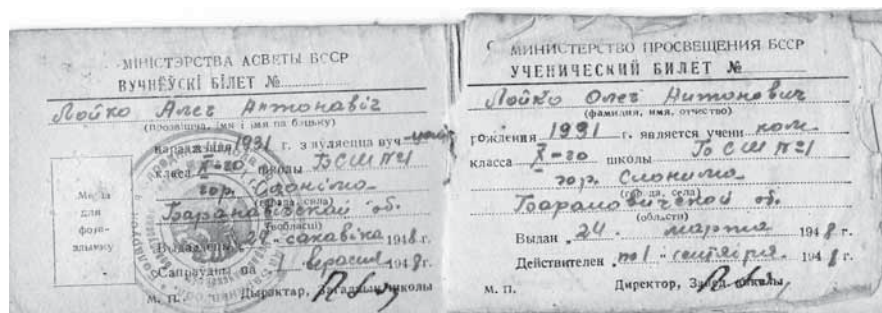 МІНІСТЭРСТВА АСВЕТЫ БССР
ВУЧНЁЎСКІ БІЛЕТ №
Лойко Алег Антонавіч
(прозвішча, імя і імя па бацьку)
нараджэння 1931 г. з'яўляецца вуч
класа X-го школы БСШ №1
гор. Слоніма
(горада, сяла)
Баранавічскай об.
(вобласці)
Месца
для
фота-
здымку
Выдадзены 24 сакавіка 1948 г.
Сапраўдны па 1 верасня 1948 г.
М. П. Дырэктар, Загадчык школы
МИНИСТЕРСТВО ПРОСВЕЩЕНИЯ БССР
УЧЕНИЧЕСКИЙ БИЛЕТ №
Лойко Олег Антонович
(фамилия, имя, отчество)
рождения 1931 г. является учеником
класса X-го школы БСШ №1
гор. Слонима
(города, села)
Барановичской об.
(области)
Выдан 24 марта 1948 г.
Действителен по 1 сентября 1948 г.
М. П. Директор, Завед. школы